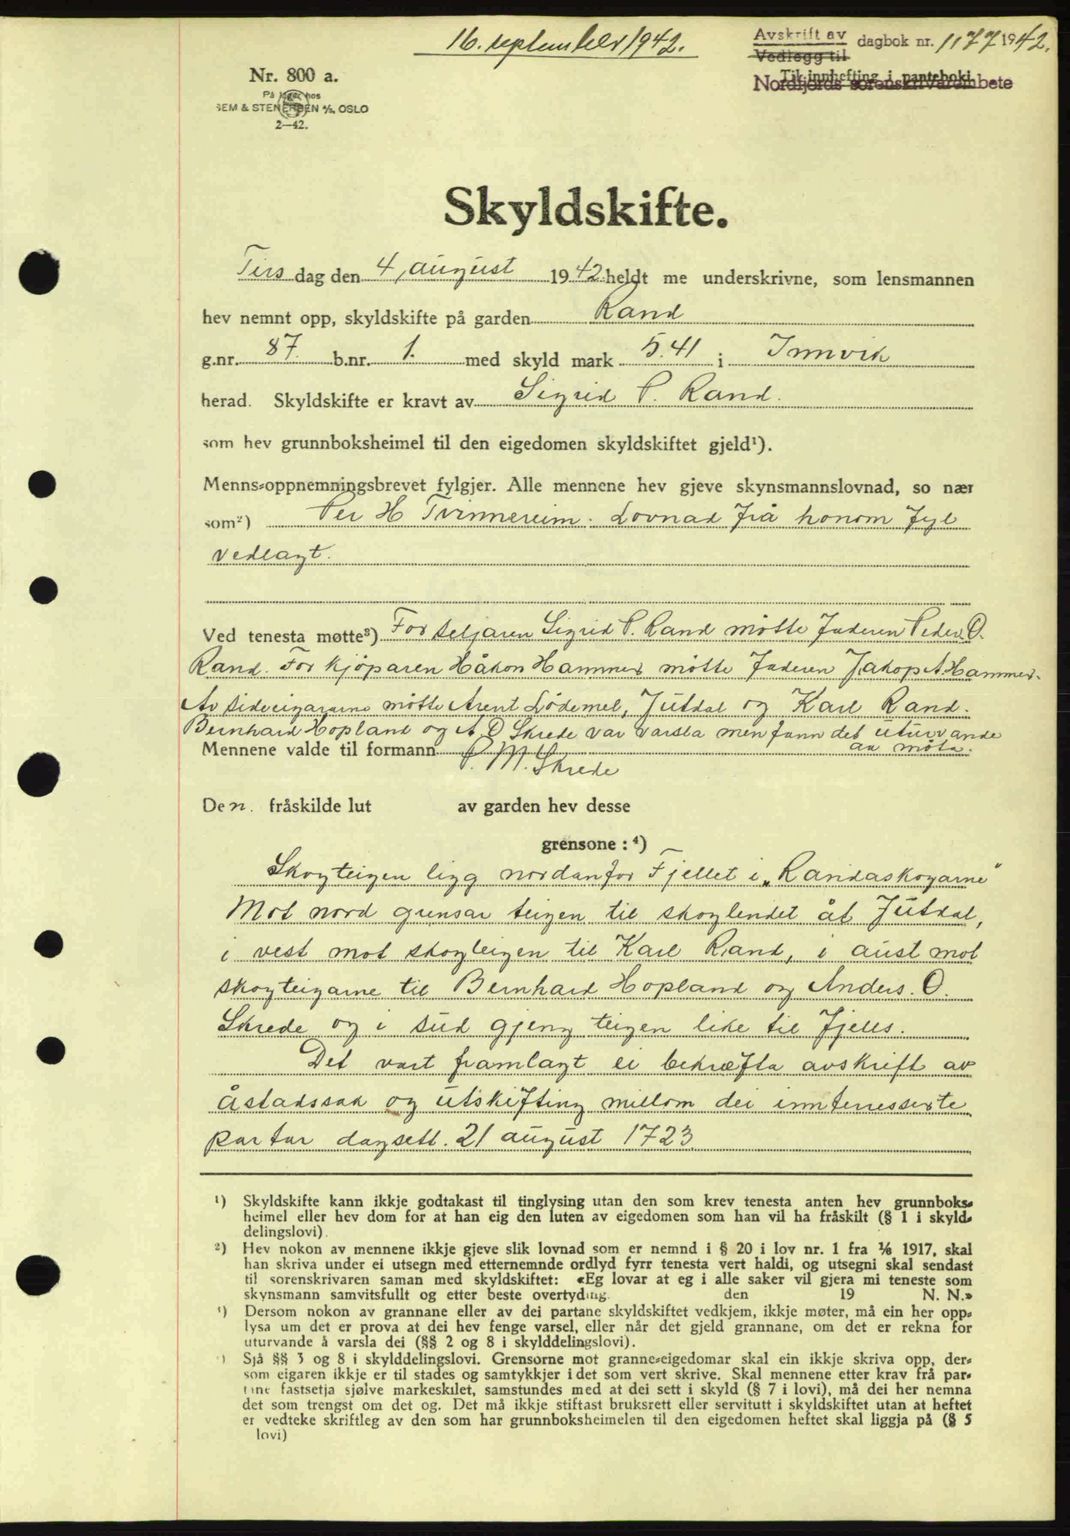 16. september 1942.
Avskrift av
Vedlegg til
dagbok nr. 1177 1942.
Til innhefting i panteboki
Nordfjords sorenskrivarembete
Nr. 800 a.
På lager hos
SEM & STENERSEN A/S, OSLO
2—42.
Skyldskifte.
Tirs dag den 4, august 1942 heldt me underskrivne, som lensmannen
hev nemnt opp, skyldskifte på garden Rand
g.nr. 87. b.nr. 1. med skyld mark 5.41 i Innvik
herad. Skyldskifte er kravt av Sigrid P. Rand.
som hev grunnboksheimel til den eigedomen skyldskiftet gjeld¹).
Menns-oppnemningsbrevet fylgjer. Alle mennene hev gjeve skynsmannslovnad, so nær
som²) Per H Tvinnereim. Lovnad frå honom fyl
vedlagt.
Ved tenesta møtte³) For seljaren Sigrid P. Rand møtte faderen Peder O.
Rand. For kjøparen Håkon Hammer møtte faderen Jakop A. Hammer.
Av sideeigarane møtte Arent Lødemel, Jutdal og Karl Rand.
Bernhard Hopland og A O Skrede var varsla men fann det uturvande
aa møta.
Mennene valde til formann P. M. Skrede
Den. fråskilde lut av garden hev desse
grensone : ⁴)
Skogteigen ligg nordanfor Fjellet i „Randaskogarne"
Mot nord grensar teigen til skoglendet åt Jutdal,
i vest mot skogteigen til Karl Rand, i aust mot
skogteigarne til Bernhard Hopland og Anders. O.
Skrede og i sud gjeng teigen like til fjells.
Det vart framlagt ei bekræfta avskrift av
åstadssak og utskifting millom dei innteresserte
partar dagsett. 21 august 1723
¹) Skyldskifte kann ikkje godtakast til tinglysing utan den som krev tenesta anten hev grunnboks-
heimel eller hev dom for at han eig den luten av eigedomen som han vil ha fråskilt (§ 1 i skyld-
delingslovi).
²) Hev nokon av mennene ikkje gjeve slik lovnad som er nemnd i § 20 i lov nr. 1 fra 1/6 1917, skal
han skriva under ei utsegn med etternemnde ordlyd fyrr tenesta vert haldi, og utsegni skal sendast
til sorenskrivaren saman med skyldskiftet: «Eg lovar at eg i alle saker vil gjera mi teneste som
skynsmann samvitsfullt og etter beste overtyding. den 19 N. N.»
³) Dersom nokon av grannane eller av dei partane skyldskiftet vedkjem, ikkje møter, må ein her opp-
lysa um det er prova at dei hev fenge varsel, eller når det gjeld grannane, om det er rekna for
uturvande å varsla dei (§§ 2 og 8 i skylddelingslovi).
⁴) Sjå §§ 3 og 8 i skylddelingslovi. Grensorne mot granne-eigedomar skal ein ikkje skriva opp, der-
som eigaren ikkje er til stades og samtykkjer i det som vert skrive. Skal mennene etter krav frå par-
tane fastsetja sjølve markeskilet, samstundes med at dei sett i skyld (§ 7 i lovi), må dei her nemna
det som trengst om det og. Det må ikkje stiftast bruksrett eller servitutt i skyldskiftet utan at heftet
er vedteke skriftleg av den som har grunnboksheimelen til den eigedomen heftet skal liggja på (§ 5
lovi)